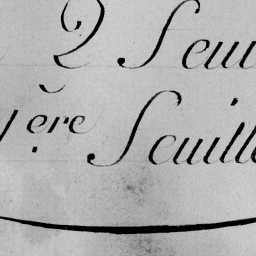 2 Feui
1ère Feuille